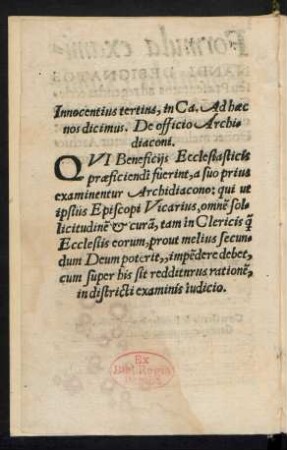 Innocentius tertius, in Ca. Ad hæc
nos dicimus. De officio Archi-
diaconi.
QVI Beneficijs Ecclesiasticis
præficiendi fuerint, a suo prius
examinentur Archidiacono: qui ut
ipsius Episcopi Vicarius, omnẽ sol-
licitudinẽ & curã, tam in Clericis q̃
Ecclesiis eorum, prout melius secun-
dum Deum poterit,, impẽdere debet,
cum super his sit redditurus rationẽ,
in districti examinis iudicio.
Ex